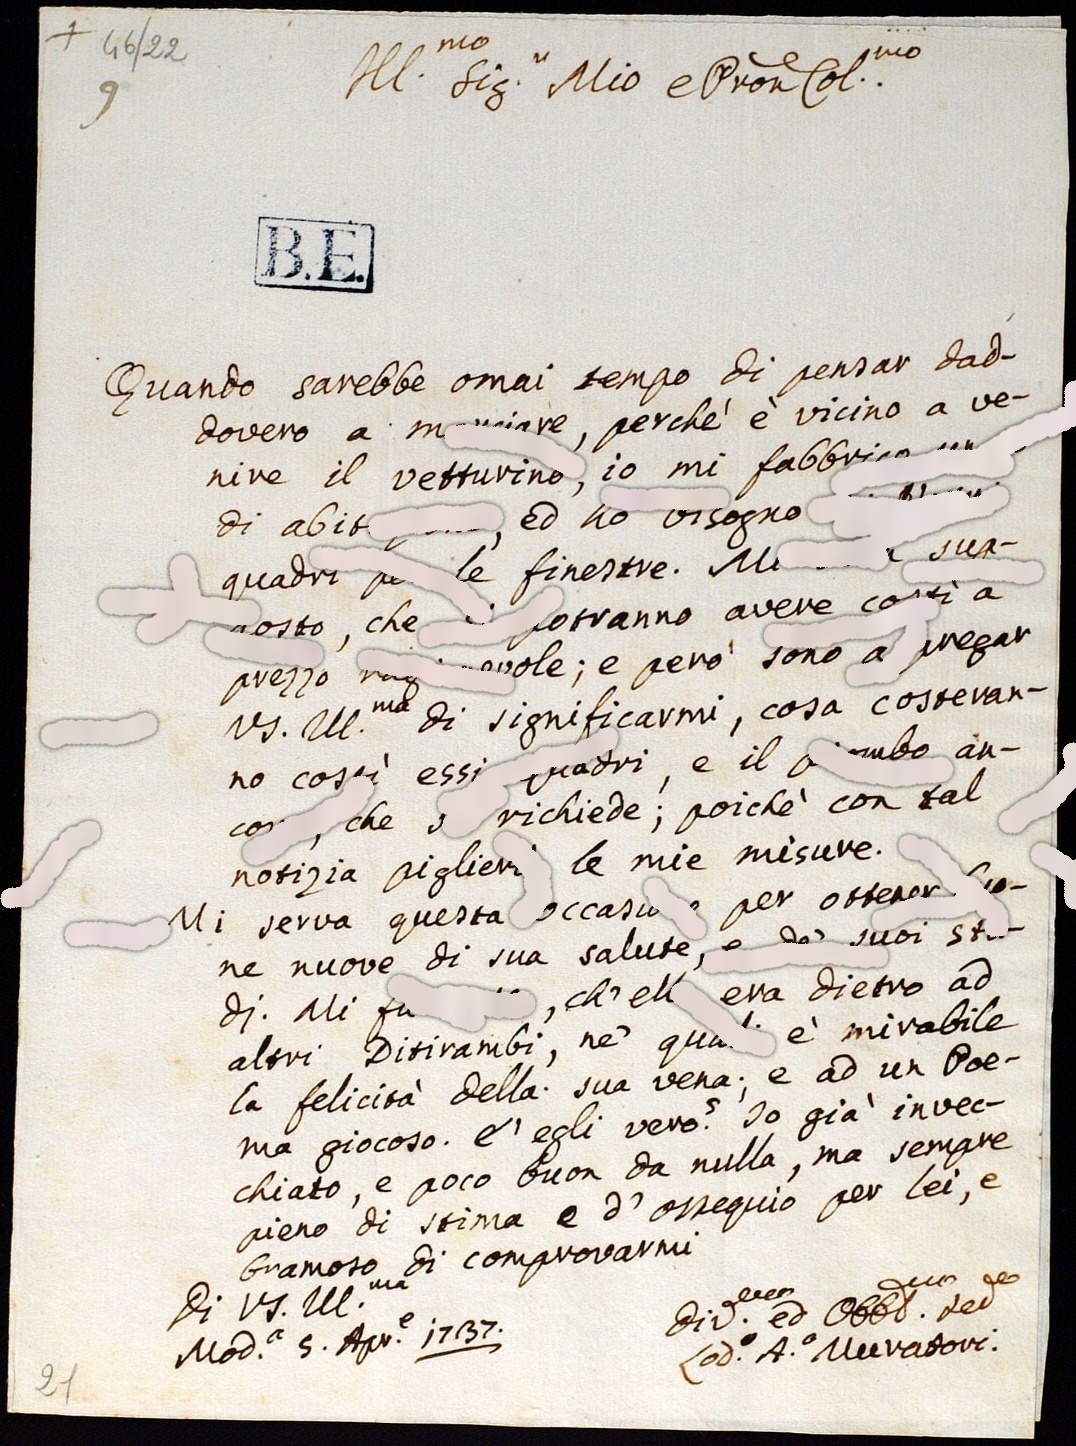 + 46/22
9
Ill.mo Sig.r Mio e Pron Col.mo
B.E.
Quando sarebbe omai tempo di pensar dad-
dovero a marciare, perchè è vicino a ve-
nire il vetturino, io mi fabbrico un
di abit , ed ho bisogno
quadri per le finestre. M sup-
posto, che si potranno avere costì a
prezzo ragionevole; e però sono a pregar
VS. Ill.ma di significarmi, cosa costeran-
no costì essi quadri, e il piombo an-
cora, che si richiede; poichè con tal
notizia piglierò le mie misure.
Mi serva questa occasione per ottener buo-
ne nuove di sua salute, e de' suoi stu-
dj. Mi fu , ch'ella era dietro ad
altri Ditirambi, ne' quali è mirabile
la felicità della sua vena; e ad un Poe-
ma giocoso. È egli vero? Io già invec-
chiato, e poco buon da nulla, ma sempre
pieno di stima e d'ossequio per lei, e
bramoso di comprovarmi
Di VS. Ill.ma
Mod.a 5. Apr.e 1737.
Div.mo ed Obbl.mo Ser.e
Lod.o A.o Muratori.
21